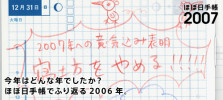 12月31日
ほぼ日手帳
2007
火曜日
2007年への意気込み表明
宝方をやめる!!!!!
今年はどんな年でしたか?
ほぼ日手帳でふり返る2006年。